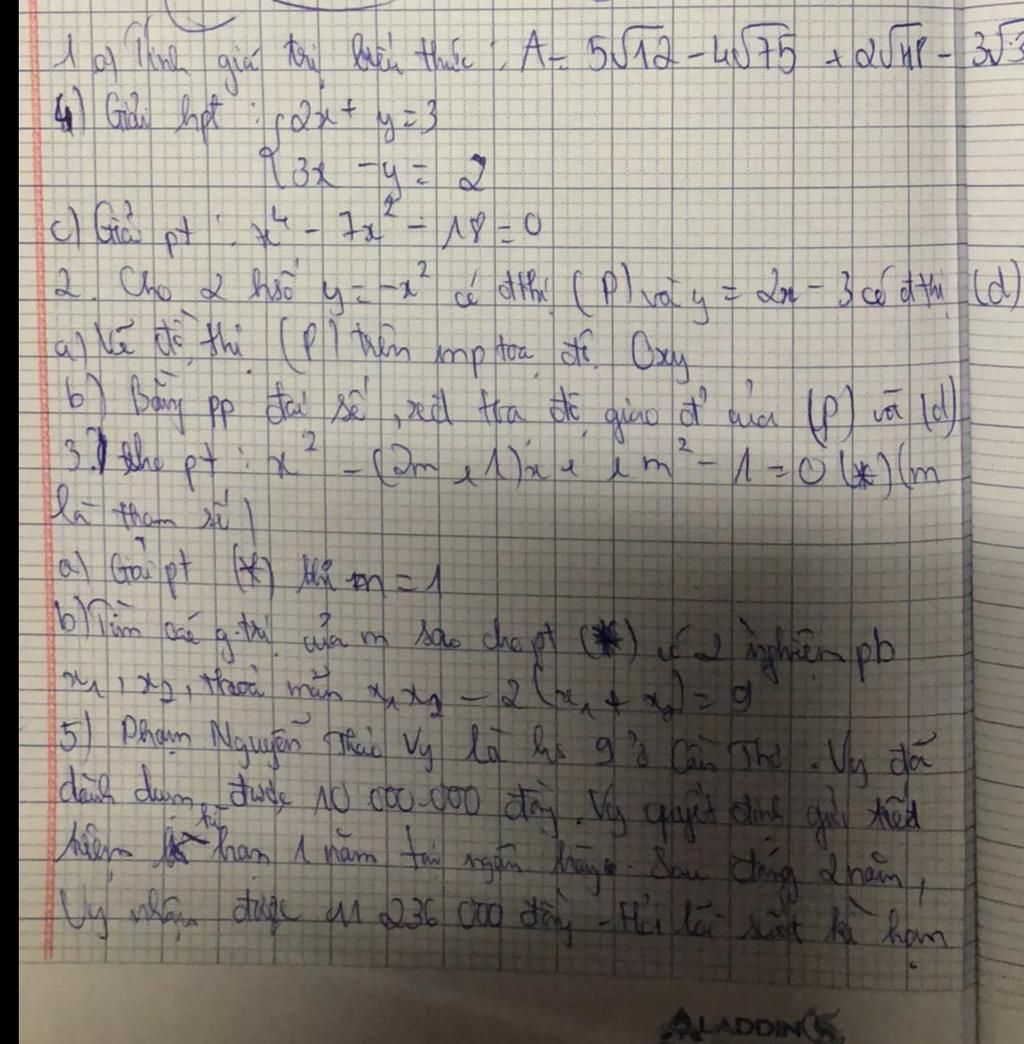 1 a) Tính giá trị biểu thức : A = 5√12 - 4√75 + 2√48 - 3√3
b) Giải hpt : { 2x + y = 3
3x - y = 2
c) Giải pt : x⁴ - 7x² - 18 = 0
2. Cho 2 hsố y = -x² có đthị (P) và y = 2x - 3 có đ thị (d)
a) Vẽ đồ thị (P) trên mp tọa độ Oxy
b) Bằng pp đại số, xđ tọa độ giao đ' của (P) và (d)
3.) cho pt : x² - (2m + 1)x + m² - 1 = 0 (*) (m
là tham số)
a) Giải pt (*) khi m = 1
b) Tìm các g.trị của m sao cho pt (*) có 2 nghiệm pb
x₁, x₂, thoả mãn x₁x₂ - 2(x₁ + x₂) = 9
5) Phạm Nguyễn Thảo Vy là hs 9 ở Cần Thơ. Vy đã
dành dụm được 10 000.000 đồng. Vy quyết định gửi tiết
kiệm kì hạn 1 năm tại ngân hàng. Sau đúng 2 năm,
Vy nhận được 11 236 000 đồng - Hỏi lãi suất kì hạn
ALADDIN